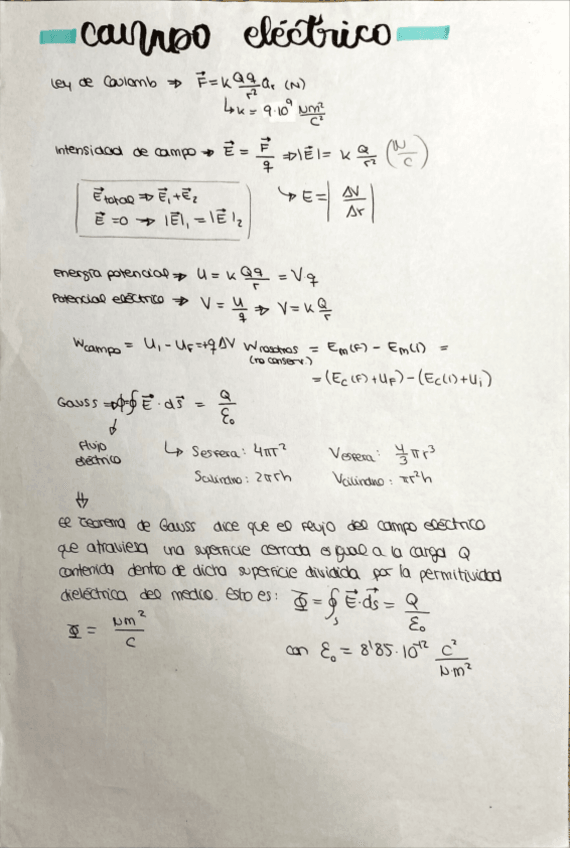 campo eléctrico
Ley de Coulomb ⇒ F⃗ = K Qq/r² aᵣ (N)
↳ K = 9·10⁹ Nm²/C²
Intensidad de campo → E⃗ = F⃗/q ⇒ |E⃗| = K Q/r² (N/C)
E⃗total ⇒ E⃗₁ + E⃗₂
↳ E = |ΔV/Δr|
E⃗ = 0 → |E⃗|₁ = |E⃗|₂
Energía potencial ⇒ U = K Qq/r = Vq
Potencial eléctrico ⇒ V = U/q ⇒ V = K Q/r
Wcampo = Ui - UF = +qΔV Wnosotros = Em(F) - Em(i) =
(no conserv.)
= (Ec(F) + UF) - (Ec(i) + Ui)
Gauss ⇒ ϕ = ∮ E⃗ · ds⃗ = Q/ε₀
Flujo eléctrico
↳ Sesfera: 4πr² Vesfera: 4/3 πr³
Scilindro: 2πrh Vcilindro: πr²h
El teorema de Gauss dice que el flujo del campo eléctrico
que atraviesa una superficie cerrada es igual a la carga Q
contenida dentro de dicha superficie dividida por la permitividad
dieléctrica del medio. Esto es: Φ = ∮s E⃗·ds⃗ = Q/ε₀
Φ = Nm²/C
con ε₀ = 8'85·10⁻¹² C²/Nm²